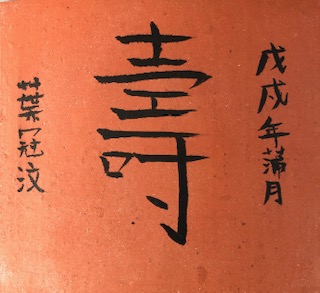 戊戌年蒲月
壽
葉冠汶